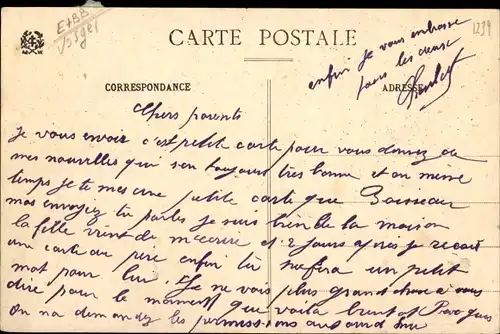 E+BB
Vosges
1239
CARTE POSTALE
CORRESPONDANCE
ADRESSE
enfin je vous embrasse
tous les deux
Chers parents
Je vous envoie c'est petite carte pour vous donnez de
mes nouvelles qui son toujours très bonne et au même
temps je te mes une petite carte que
mas envoyez tu parles je suis bien de la maison
la fille vient de mecrire et 2 jours après je recoit
une carte du pere enfin tu un petit
mot pour lui Je ne vois plus grand chose a vous
dire pour le moment que voila bientot
On na demandez les permissions